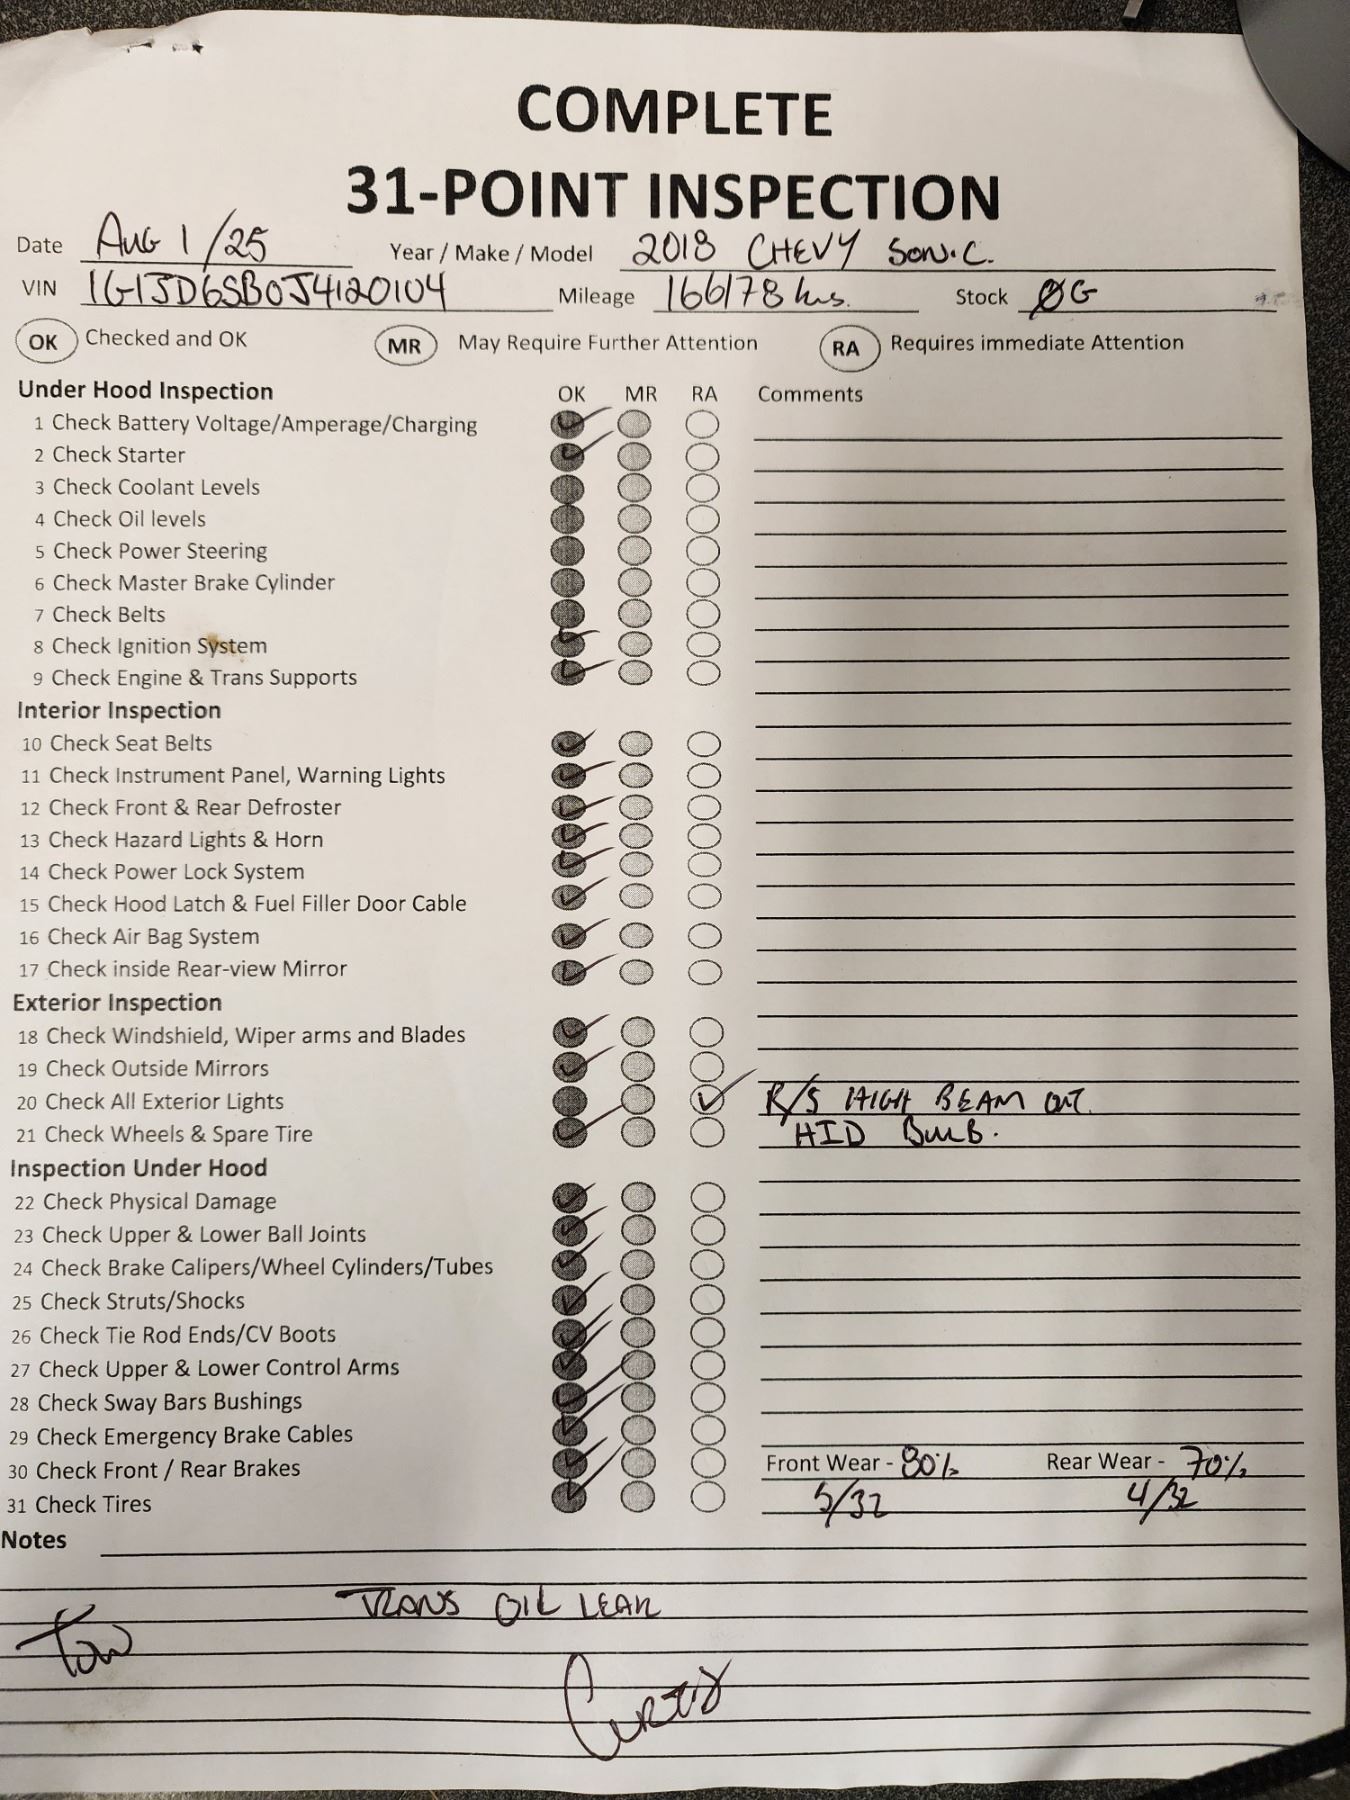 COMPLETE
31-POINT INSPECTION
Date AUG 1/25 Year / Make / Model 2018 CHEVY SONIC
VIN 1G1JD6SB0J4120104 Mileage 166178 kms. Stock ØG
OK Checked and OK MR May Require Further Attention RA Requires immediate Attention
Under Hood Inspection OK MR RA Comments
1 Check Battery Voltage/Amperage/Charging
2 Check Starter
3 Check Coolant Levels
4 Check Oil levels
5 Check Power Steering
6 Check Master Brake Cylinder
7 Check Belts
8 Check Ignition System
9 Check Engine & Trans Supports
Interior Inspection
10 Check Seat Belts
11 Check Instrument Panel, Warning Lights
12 Check Front & Rear Defroster
13 Check Hazard Lights & Horn
14 Check Power Lock System
15 Check Hood Latch & Fuel Filler Door Cable
16 Check Air Bag System
17 Check inside Rear-view Mirror
Exterior Inspection
18 Check Windshield, Wiper arms and Blades
19 Check Outside Mirrors
20 Check All Exterior Lights R/S HIGH BEAM OUT
21 Check Wheels & Spare Tire HID BULB.
Inspection Under Hood
22 Check Physical Damage
23 Check Upper & Lower Ball Joints
24 Check Brake Calipers/Wheel Cylinders/Tubes
25 Check Struts/Shocks
26 Check Tie Rod Ends/CV Boots
27 Check Upper & Lower Control Arms
28 Check Sway Bars Bushings
29 Check Emergency Brake Cables
30 Check Front / Rear Brakes Front Wear - 80% Rear Wear - 70%
31 Check Tires 5/32 4/32
Notes
TRANS OIL LEAK
Tow
Curtis